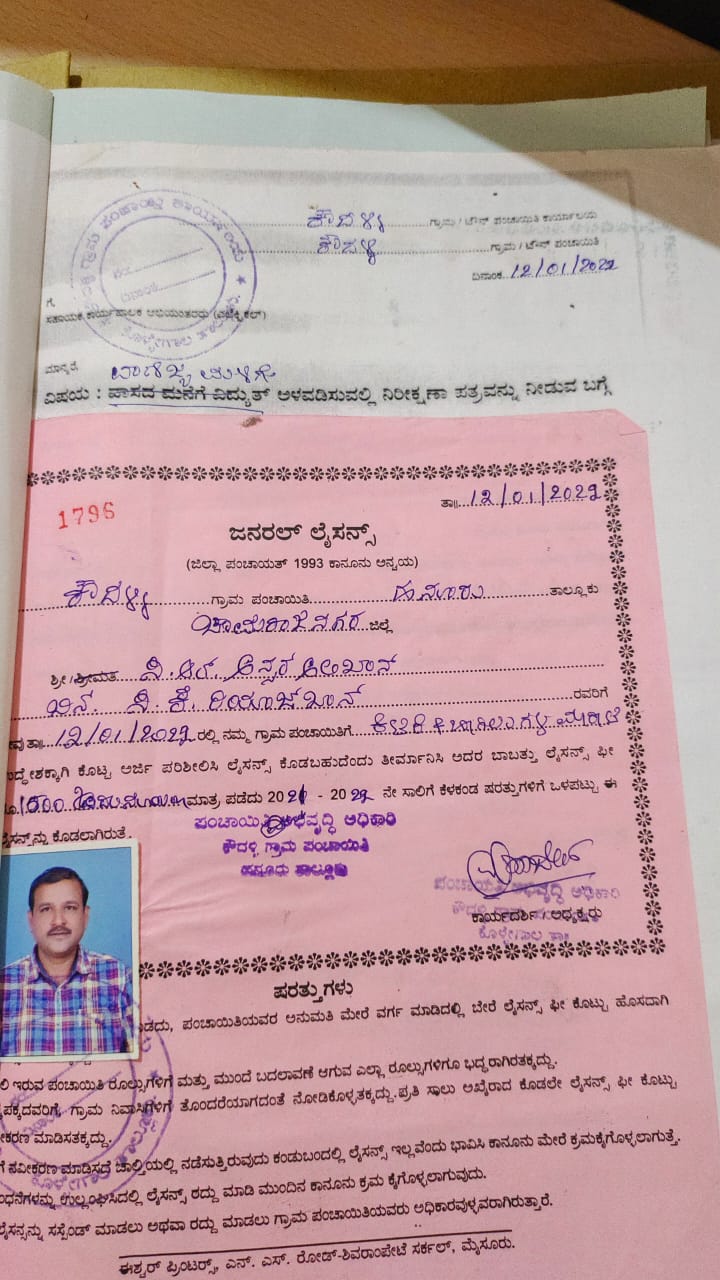 ಕೌದಳ್ಳಿ ಗ್ರಾಮ / ಟೌನ್ ಪಂಚಾಯಿತಿ ಕಾರ್ಯಾಲಯ
ಕೌದಳ್ಳಿ ಗ್ರಾಮ / ಟೌನ್ ಪಂಚಾಯಿತಿ
ದಿನಾಂಕ 12/01/2022
ಗೆ,
ಸಹಾಯಕ ಕಾರ್ಯಪಾಲಕ ಅಭಿಯಂತರರು (ಎಲೆಕ್ಟ್ರಿಕಲ್)
ಮಾನ್ಯರೆ,
ವಾಣಿಜ್ಯ ಮಳಿಗೆ
ವಿಷಯ : ವಾಸದ ಮನೆಗೆ ವಿದ್ಯುತ್ ಅಳವಡಿಸುವಲ್ಲಿ ನಿರೀಕ್ಷಣಾ ಪತ್ರವನ್ನು ನೀಡುವ ಬಗ್ಗೆ
ತಾ॥ 12/01/2022
1796
ಜನರಲ್ ಲೈಸನ್ಸ್
(ಜಿಲ್ಲಾ ಪಂಚಾಯತ್ 1993 ಕಾನೂನು ಅನ್ವಯ)
ಕೌದಳ್ಳಿ ಗ್ರಾಮ ಪಂಚಾಯಿತಿ ಹನೂರು ತಾಲ್ಲೂಕು
ಚಾಮರಾಜನಗರ ಜಿಲ್ಲೆ
ಶ್ರೀ / ಶ್ರೀಮತಿ ವಿ. ಆರ್. ಅನ್ಸರ್ ಅಲಿಖಾನ್
ಬಿನ್. ವಿ. ಕೆ. ರಿಯಾಜ್ ಖಾನ್ ರವರಿಗೆ
ತಾ॥ 12/01/2022 ರಲ್ಲಿ ನಮ್ಮ ಗ್ರಾಮ ಪಂಚಾಯಿತಿಗೆ
ಉದ್ದೇಶಕ್ಕಾಗಿ ಕೊಟ್ಟ ಅರ್ಜಿ ಪರಿಶೀಲಿಸಿ ಲೈಸನ್ಸ್ ಕೊಡಬಹುದೆಂದು ತೀರ್ಮಾನಿಸಿ ಅದರ ಬಾಬತ್ತು ಲೈಸನ್ಸ್ ಫೀ
ರೂ. 1500 ಮಾತ್ರ ಪಡೆದು 2021 - 2022 ನೇ ಸಾಲಿಗೆ ಕೆಳಕಂಡ ಷರತ್ತುಗಳಿಗೆ ಒಳಪಟ್ಟು ಈ
ಲೈಸನ್ಸ್‌ನ್ನು ಕೊಡಲಾಗಿರುತ್ತೆ.
ಪಂಚಾಯಿತಿ ಅಭಿವೃದ್ಧಿ ಅಧಿಕಾರಿ
ಕೌದಳ್ಳಿ ಗ್ರಾಮ ಪಂಚಾಯಿತಿ
ಹನೂರು ತಾಲ್ಲೂಕು
ಪಂಚಾಯಿತಿ ಅಭಿವೃದ್ಧಿ ಅಧಿಕಾರಿ
ಕಾರ್ಯದರ್ಶಿ / ಅಧ್ಯಕ್ಷರು
ಕೊಳ್ಳೇಗಾಲ ತಾ॥
ಷರತ್ತುಗಳು
ಪಡೆದು, ಪಂಚಾಯಿತಿಯವರ ಅನುಮತಿ ಮೇರೆ ವರ್ಗ ಮಾಡಿದಲ್ಲಿ ಬೇರೆ ಲೈಸನ್ಸ್ ಫೀ ಕೊಟ್ಟು ಹೊಸದಾಗಿ
ಇರುವ ಪಂಚಾಯಿತಿ ರೂಲ್ಸುಗಳಿಗೆ ಮತ್ತು ಮುಂದೆ ಬದಲಾವಣೆ ಆಗುವ ಎಲ್ಲಾ ರೂಲ್ಸುಗಳಿಗೂ ಭದ್ಧರಾಗಿರತಕ್ಕದ್ದು.
ಪಕ್ಕದವರಿಗೆ, ಗ್ರಾಮ ನಿವಾಸಿಗಳಿಗೆ ತೊಂದರೆಯಾಗದಂತೆ ನೋಡಿಕೊಳ್ಳತಕ್ಕದ್ದು. ಪ್ರತಿ ಸಾಲು ಅಖೈರಾದ ಕೂಡಲೇ ಲೈಸನ್ಸ್ ಫೀ ಕೊಟ್ಟು
ಮಾಡಿಸತಕ್ಕದ್ದು.
ನವೀಕರಣ ಮಾಡಿಸದೆ ಚಾಲ್ತಿಯಲ್ಲಿ ನಡೆಸುತ್ತಿರುವುದು ಕಂಡುಬಂದಲ್ಲಿ ಲೈಸನ್ಸ್ ಇಲ್ಲವೆಂದು ಭಾವಿಸಿ ಕಾನೂನು ಮೇರೆ ಕ್ರಮಕೈಗೊಳ್ಳಲಾಗುತ್ತೆ.
ಉಲ್ಲಂಘಿಸಿದಲ್ಲಿ ಲೈಸನ್ಸ್ ರದ್ದು ಮಾಡಿ ಮುಂದಿನ ಕಾನೂನು ಕ್ರಮ ಕೈಗೊಳ್ಳಲಾಗುವುದು.
ಲೈಸನ್ಸನ್ನು ಸಸ್ಪೆಂಡ್ ಮಾಡಲು ಅಥವಾ ರದ್ದು ಮಾಡಲು ಗ್ರಾಮ ಪಂಚಾಯಿತಿಯವರು ಅಧಿಕಾರವುಳ್ಳವರಾಗಿರುತ್ತಾರೆ.
ಈಶ್ವರ್ ಪ್ರಿಂಟರ್ಸ್, ಎನ್. ಎಸ್. ರೋಡ್-ಶಿವರಾಂಪೇಟೆ ಸರ್ಕಲ್, ಮೈಸೂರು.